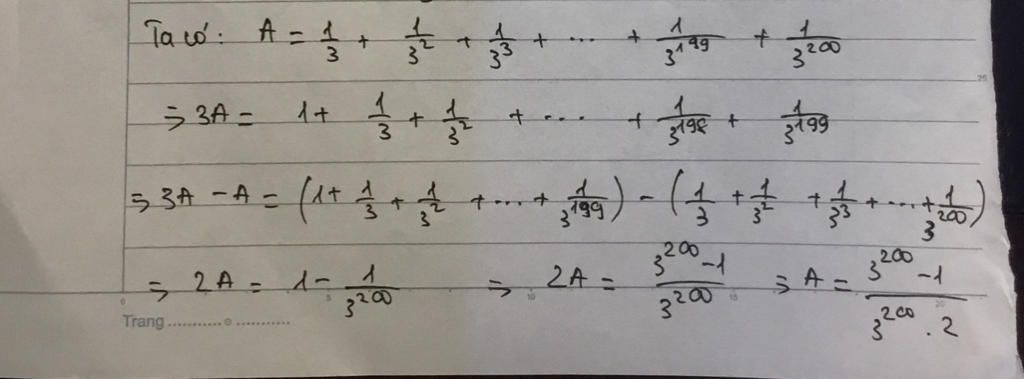 Ta có: A = 1/3 + 1/3^2 + 1/3^3 + ... + 1/3^199 + 1/3^200
⇒ 3A = 1 + 1/3 + 1/3^2 + ... + 1/3^198 + 1/3^199
⇒ 3A - A = (1 + 1/3 + 1/3^2 + ... + 1/3^199) - (1/3 + 1/3^2 + 1/3^3 + ... + 1/3^200)
⇒ 2A = 1 - 1/3^200 ⇒ 2A = (3^200 - 1)/3^200 ⇒ A = (3^200 - 1)/(3^200 . 2)
0 5 10 15 20
25
Trang ...........e...........